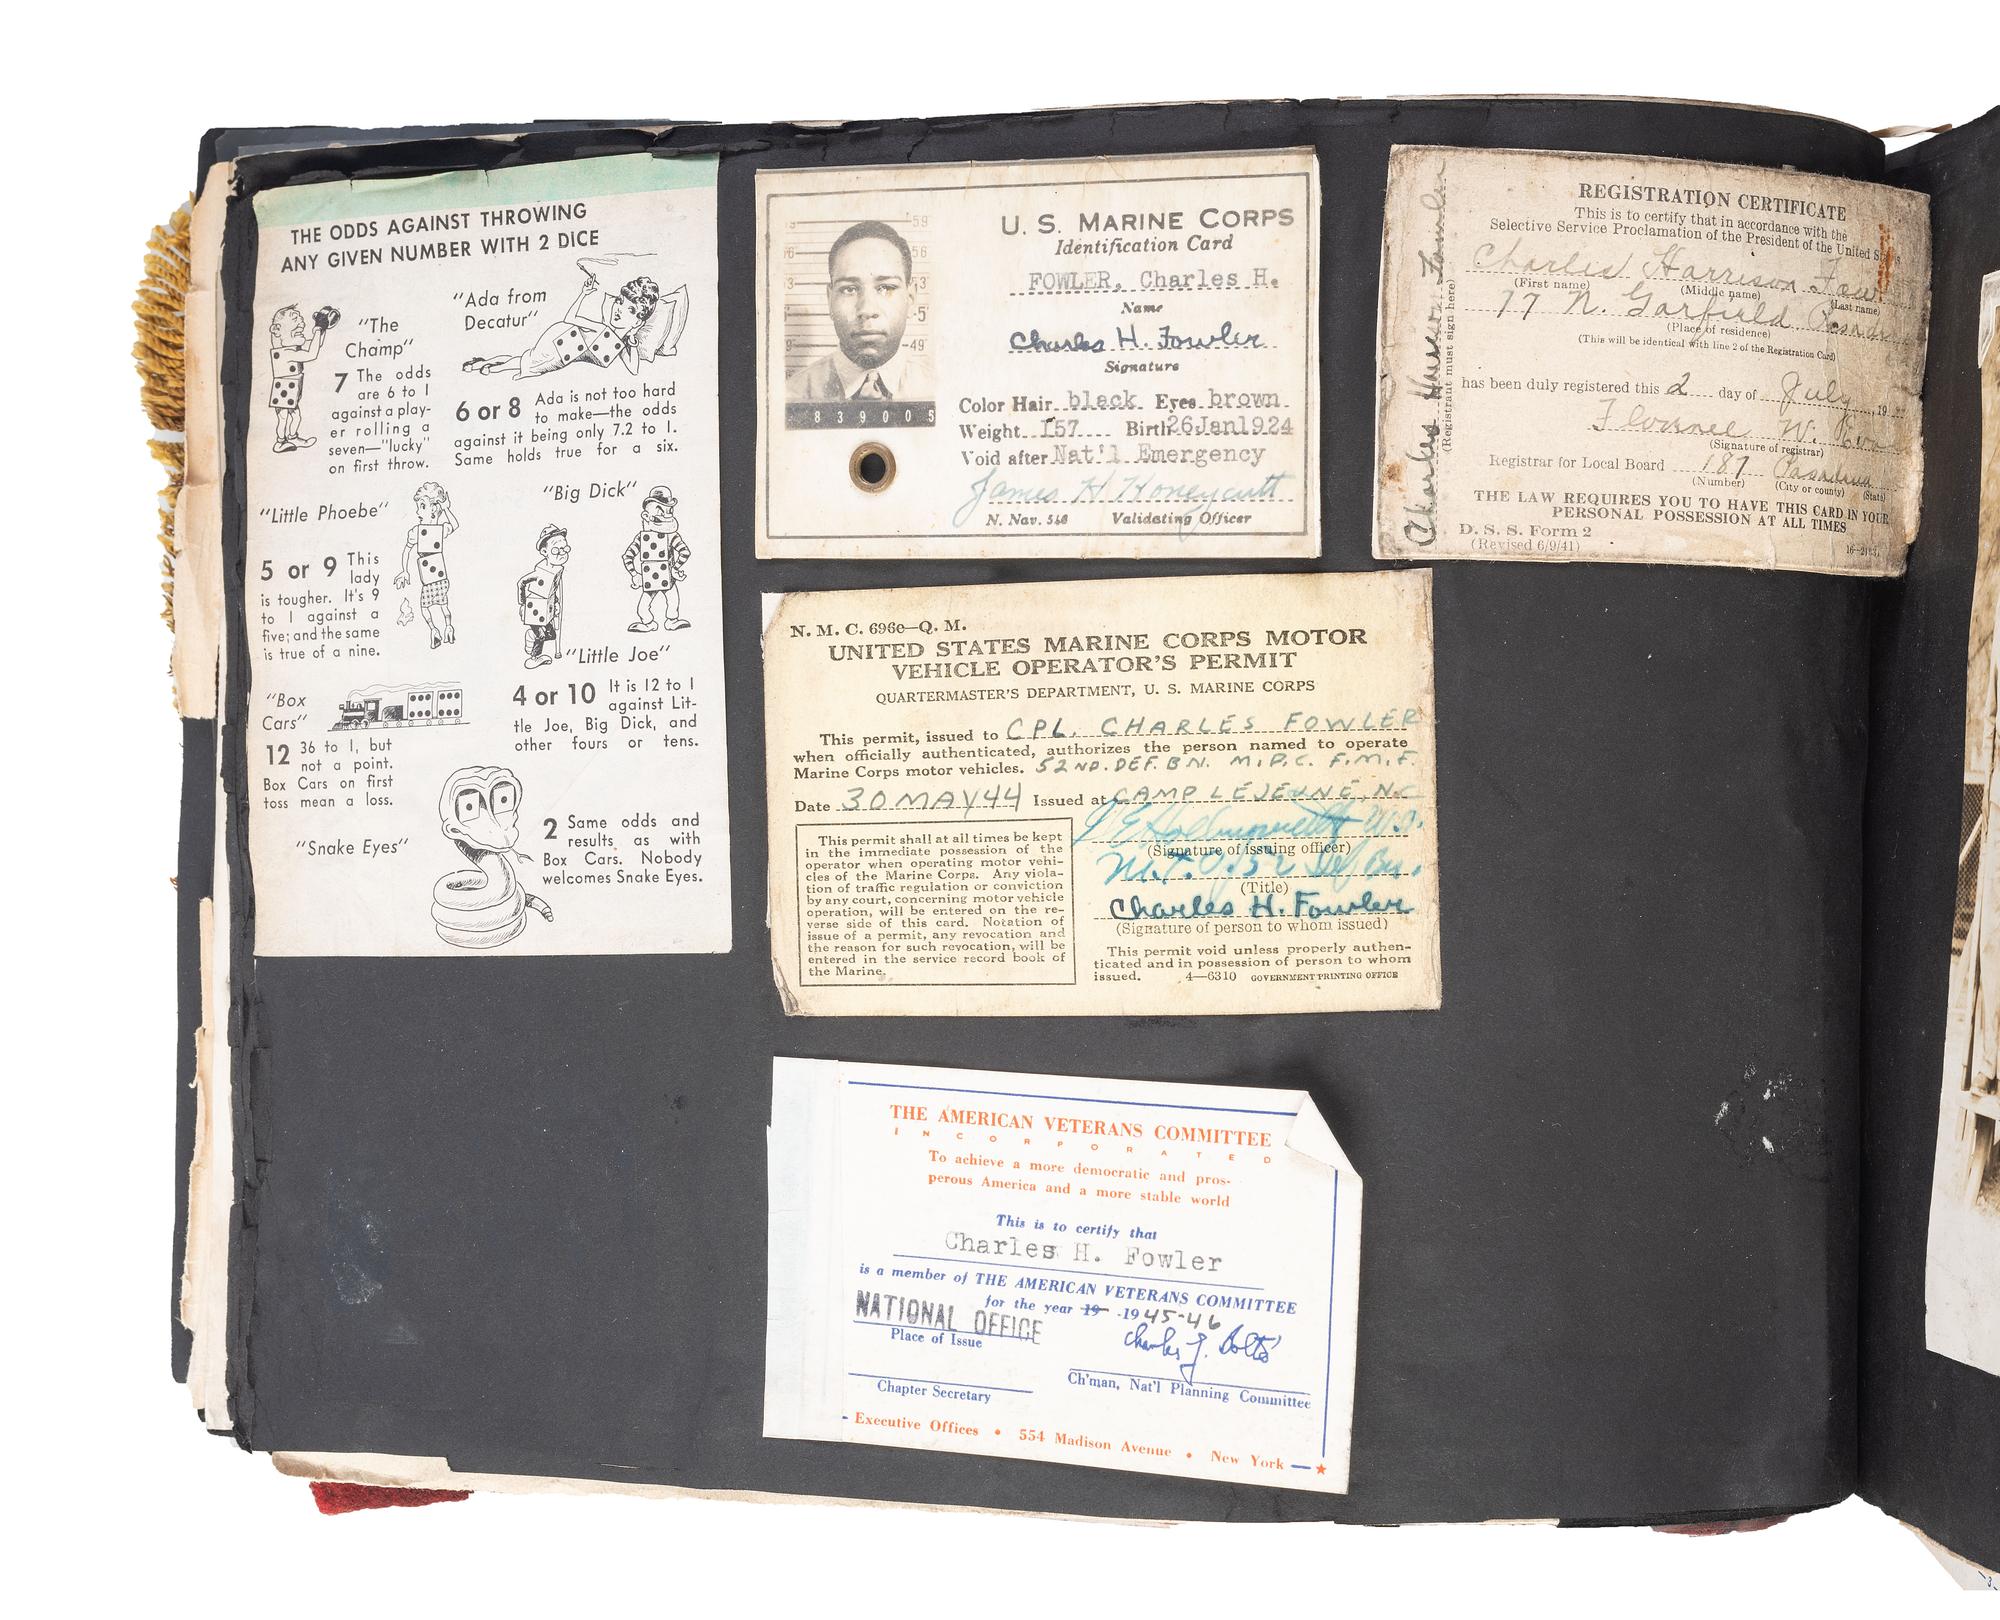 THE ODDS AGAINST THROWING
ANY GIVEN NUMBER WITH 2 DICE
"The
Champ"
7 The odds
are 6 to 1
against a play-
er rolling a
seven—"lucky"
on first throw.
"Ada from
Decatur"
6 or 8 Ada is not too hard
to make—the odds
against it being only 7.2 to 1.
Same holds true for a six.
"Little Phoebe"
5 or 9 This
lady
is tougher. It's 9
to 1 against a
five; and the same
is true of a nine.
"Big Dick"
"Little Joe"
4 or 10 It is 12 to 1
against Lit-
tle Joe, Big Dick, and
other fours or tens.
"Box
Cars"
12 36 to 1, but
not a point.
Box Cars on first
toss mean a loss.
"Snake Eyes"
2 Same odds and
results as with
Box Cars. Nobody
welcomes Snake Eyes.
U. S. MARINE CORPS
Identification Card
FOWLER, Charles H.
Name
Charles H. Fowler
Signature
Color Hair black Eyes brown
Weight 157 Birth 26Jan1924
Void after Nat'l Emergency
James H Honeycutt
N. Nav. 546 Validating Officer
59
56
53
5
49
839005
REGISTRATION CERTIFICATE
This is to certify that in accordance with the
Selective Service Proclamation of the President of the United States
Charles Harrison Fow
(First name) (Middle name) (Last name)
77 N. Garfield Pasadena
(Place of residence)
(This will be identical with line 2 of the Registration Card)
has been duly registered this 2 day of July, 19
W.
(Signature of registrar)
Registrar for Local Board 187 Pasadena
(Number) (City or county) (State)
THE LAW REQUIRES YOU TO HAVE THIS CARD IN YOUR
PERSONAL POSSESSION AT ALL TIMES
D. S. S. Form 2
(Revised 6/9/41)
Charles Harrison Fowler
(Registrant must sign here)
N. M. C. 696c—Q. M.
UNITED STATES MARINE CORPS MOTOR
VEHICLE OPERATOR'S PERMIT
QUARTERMASTER'S DEPARTMENT, U. S. MARINE CORPS
This permit, issued to CPL. CHARLES FOWLER
when officially authenticated, authorizes the person named to operate
Marine Corps motor vehicles. 52ND. DEF. BN. M.P.C. F.M.F.
Date 30 MAY 44 Issued at CAMP LEJEUNE, N.C
(Signature of issuing officer)
M.T.O. 52 Def Bn.
(Title)
Charles H. Fowler
(Signature of person to whom issued)
This permit void unless properly authen-
ticated and in possession of person to whom
issued. 4—6310 GOVERNMENT PRINTING OFFICE
This permit shall at all times be kept
in the immediate possession of the
operator when operating motor vehi-
cles of the Marine Corps. Any viola-
tion of traffic regulation or conviction
by any court, concerning motor vehicle
operation, will be entered on the re-
verse side of this card. Notation of
issue of a permit, any revocation and
the reason for such revocation, will be
entered in the service record book of
the Marine.
THE AMERICAN VETERANS COMMITTEE
INCORPORATED
To achieve a more democratic and pros-
perous America and a more stable world
This is to certify that
Charles H. Fowler
is a member of THE AMERICAN VETERANS COMMITTEE
for the year 19 -1945-46
NATIONAL OFFICE
Place of Issue
Charles G. Bolté
Chapter Secretary
Ch'man, Nat'l Planning Committee
Executive Offices • 554 Madison Avenue • New York